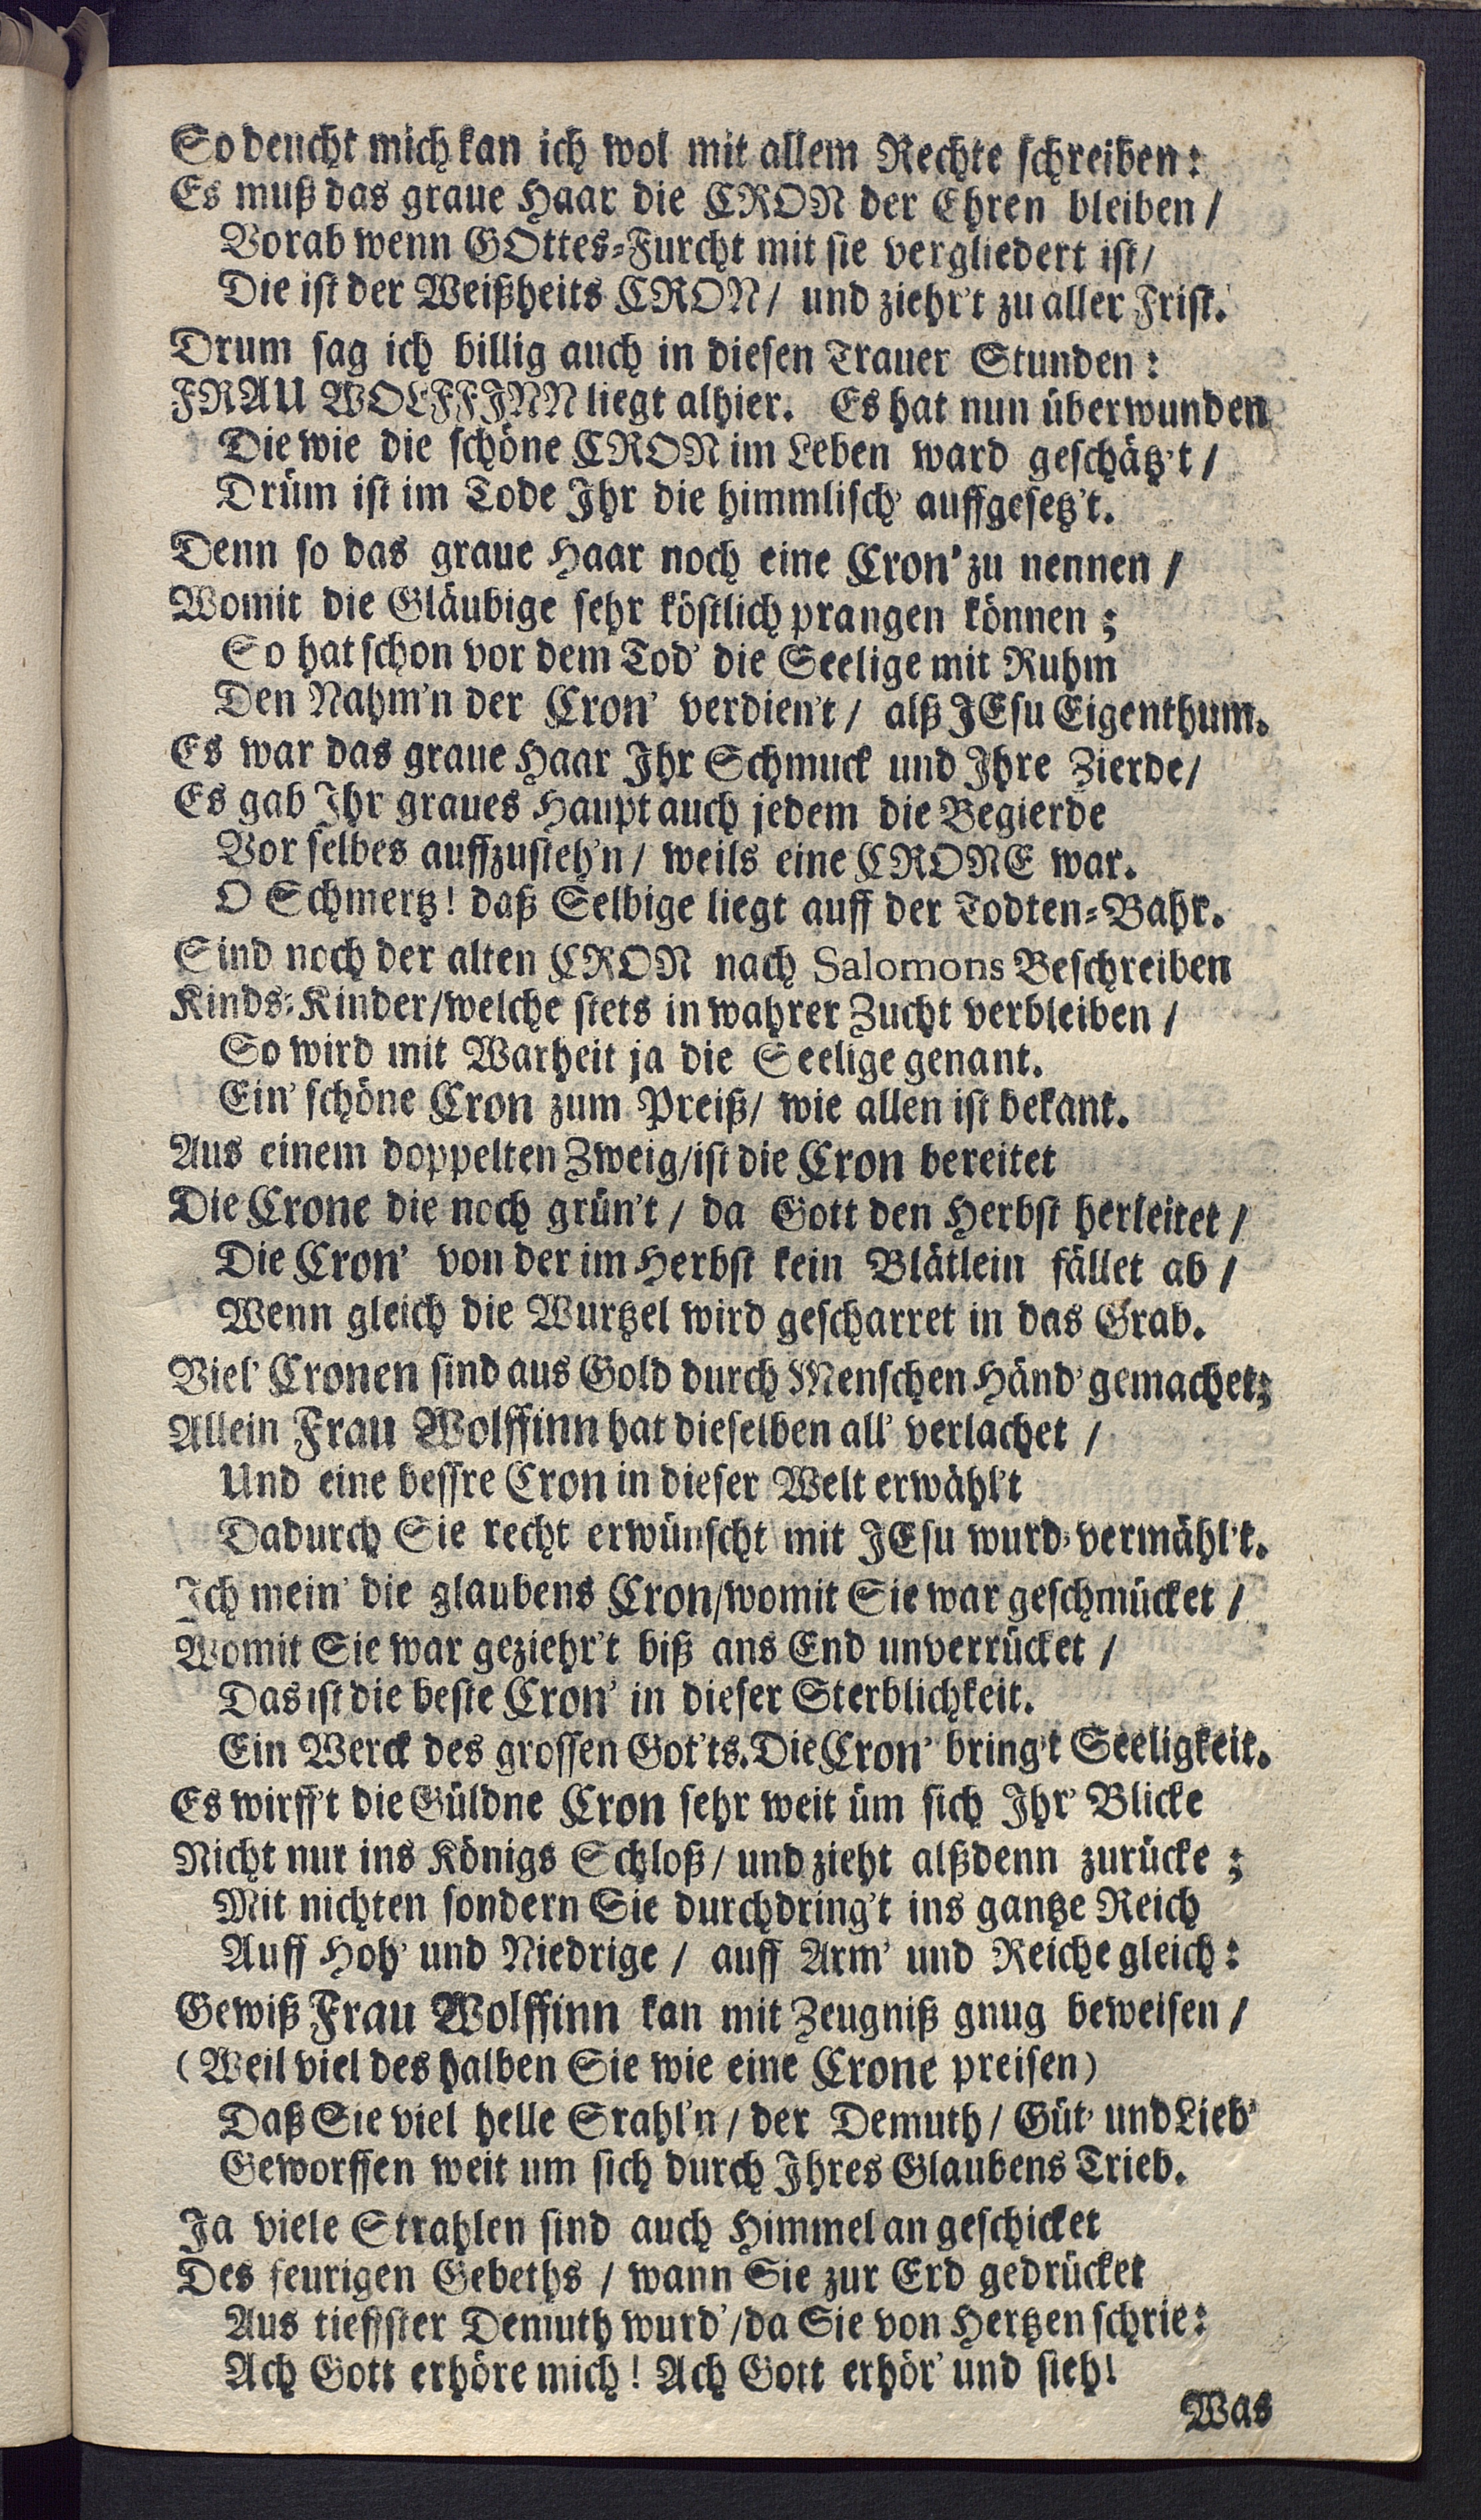 So deucht mich kan ich wol mit allem Rechte schreiben:
Es muß das graue Haar die CRON der Ehren bleiben /
Vorab wenn GOttes-Furcht mit sie vergliedert ist /
Die ist der Weißheits CRON / und ziehr't zu aller Frist.
Drum sag ich billig auch in diesen Trauer Stunden:
FRAU WOLFFINN liegt alhier. Es hat nun überwunden
Die wie die schöne CRON im Leben ward geschätz't /
Drüm ist im Tode Ihr die himmlisch' auffgesetz't.
Denn so das graue Haar noch eine Cron' zu nennen /
Womit die Gläubige sehr köstlich prangen können;
So hat schon vor dem Tod' die Seelige mit Ruhm
Den Nahm'n der Cron' verdien't / alß JEsu Eigenthum.
Es war das graue Haar Ihr Schmuck und Ihre Zierde /
Es gab Ihr graues Haupt auch jedem die Begierde
Vor selbes auffzusteh'n / weils eine CRONE war.
O Schmertz! daß Selbige liegt auff der Todten-Bahr.
Sind noch der alten CRON nach Salomons Beschreiben
Kinds-Kinder / welche stets in wahrer Zucht verbleiben /
So wird mit Warheit ja die Seelige genant.
Ein' schöne Cron zum Preiß / wie allen ist bekant.
Aus einem doppelten Zweig / ist die Cron bereitet
Die Crone die noch grün't / da Gott den Herbst herleitet /
Die Cron' von der im Herbst kein Blätlein fället ab /
Wenn gleich die Wurtzel wird gescharret in das Grab.
Viel' Cronen sind aus Gold durch Menschen Händ' gemachet;
Allein Frau Wolffinn hat dieselben all' verlachet /
Und eine bessre Cron in dieser Welt erwähl't
Dadurch Sie recht erwünscht mit JEsu wurd' vermähl't.
Ich mein' die glaubens Cron / womit Sie war geschmücket /
Womit Sie war geziehr't biß ans End unverrücket /
Das ist die beste Cron' in dieser Sterblichkeit.
Ein Werck des grossen Got'ts. Die Cron' bring't Seeligkeit.
Es wirff't die Güldne Cron sehr weit üm sich Ihr' Blicke
Nicht nur ins Königs Schloß / und zieht alßdenn zurücke;
Mit nichten sondern Sie durchdring't ins gantze Reich
Auff Hoh' und Niedrige / auff Arm' und Reiche gleich:
Gewiß Frau Wolffinn kan mit Zeugniß gnug beweisen /
(Weil viel des halben Sie wie eine Crone preisen)
Daß Sie viel helle Srahl'n / der Demuth / Güt' und Lieb'
Geworffen weit um sich durch Ihres Glaubens Trieb.
Ja viele Strahlen sind auch Himmel an geschicket
Des feurigen Gebeths / wann Sie zur Erd gedrücket
Aus tieffster Demuth wurd' / da Sie von Hertzen schrie:
Ach Gott erhöre mich! Ach Gott erhör' und sieh!
Was